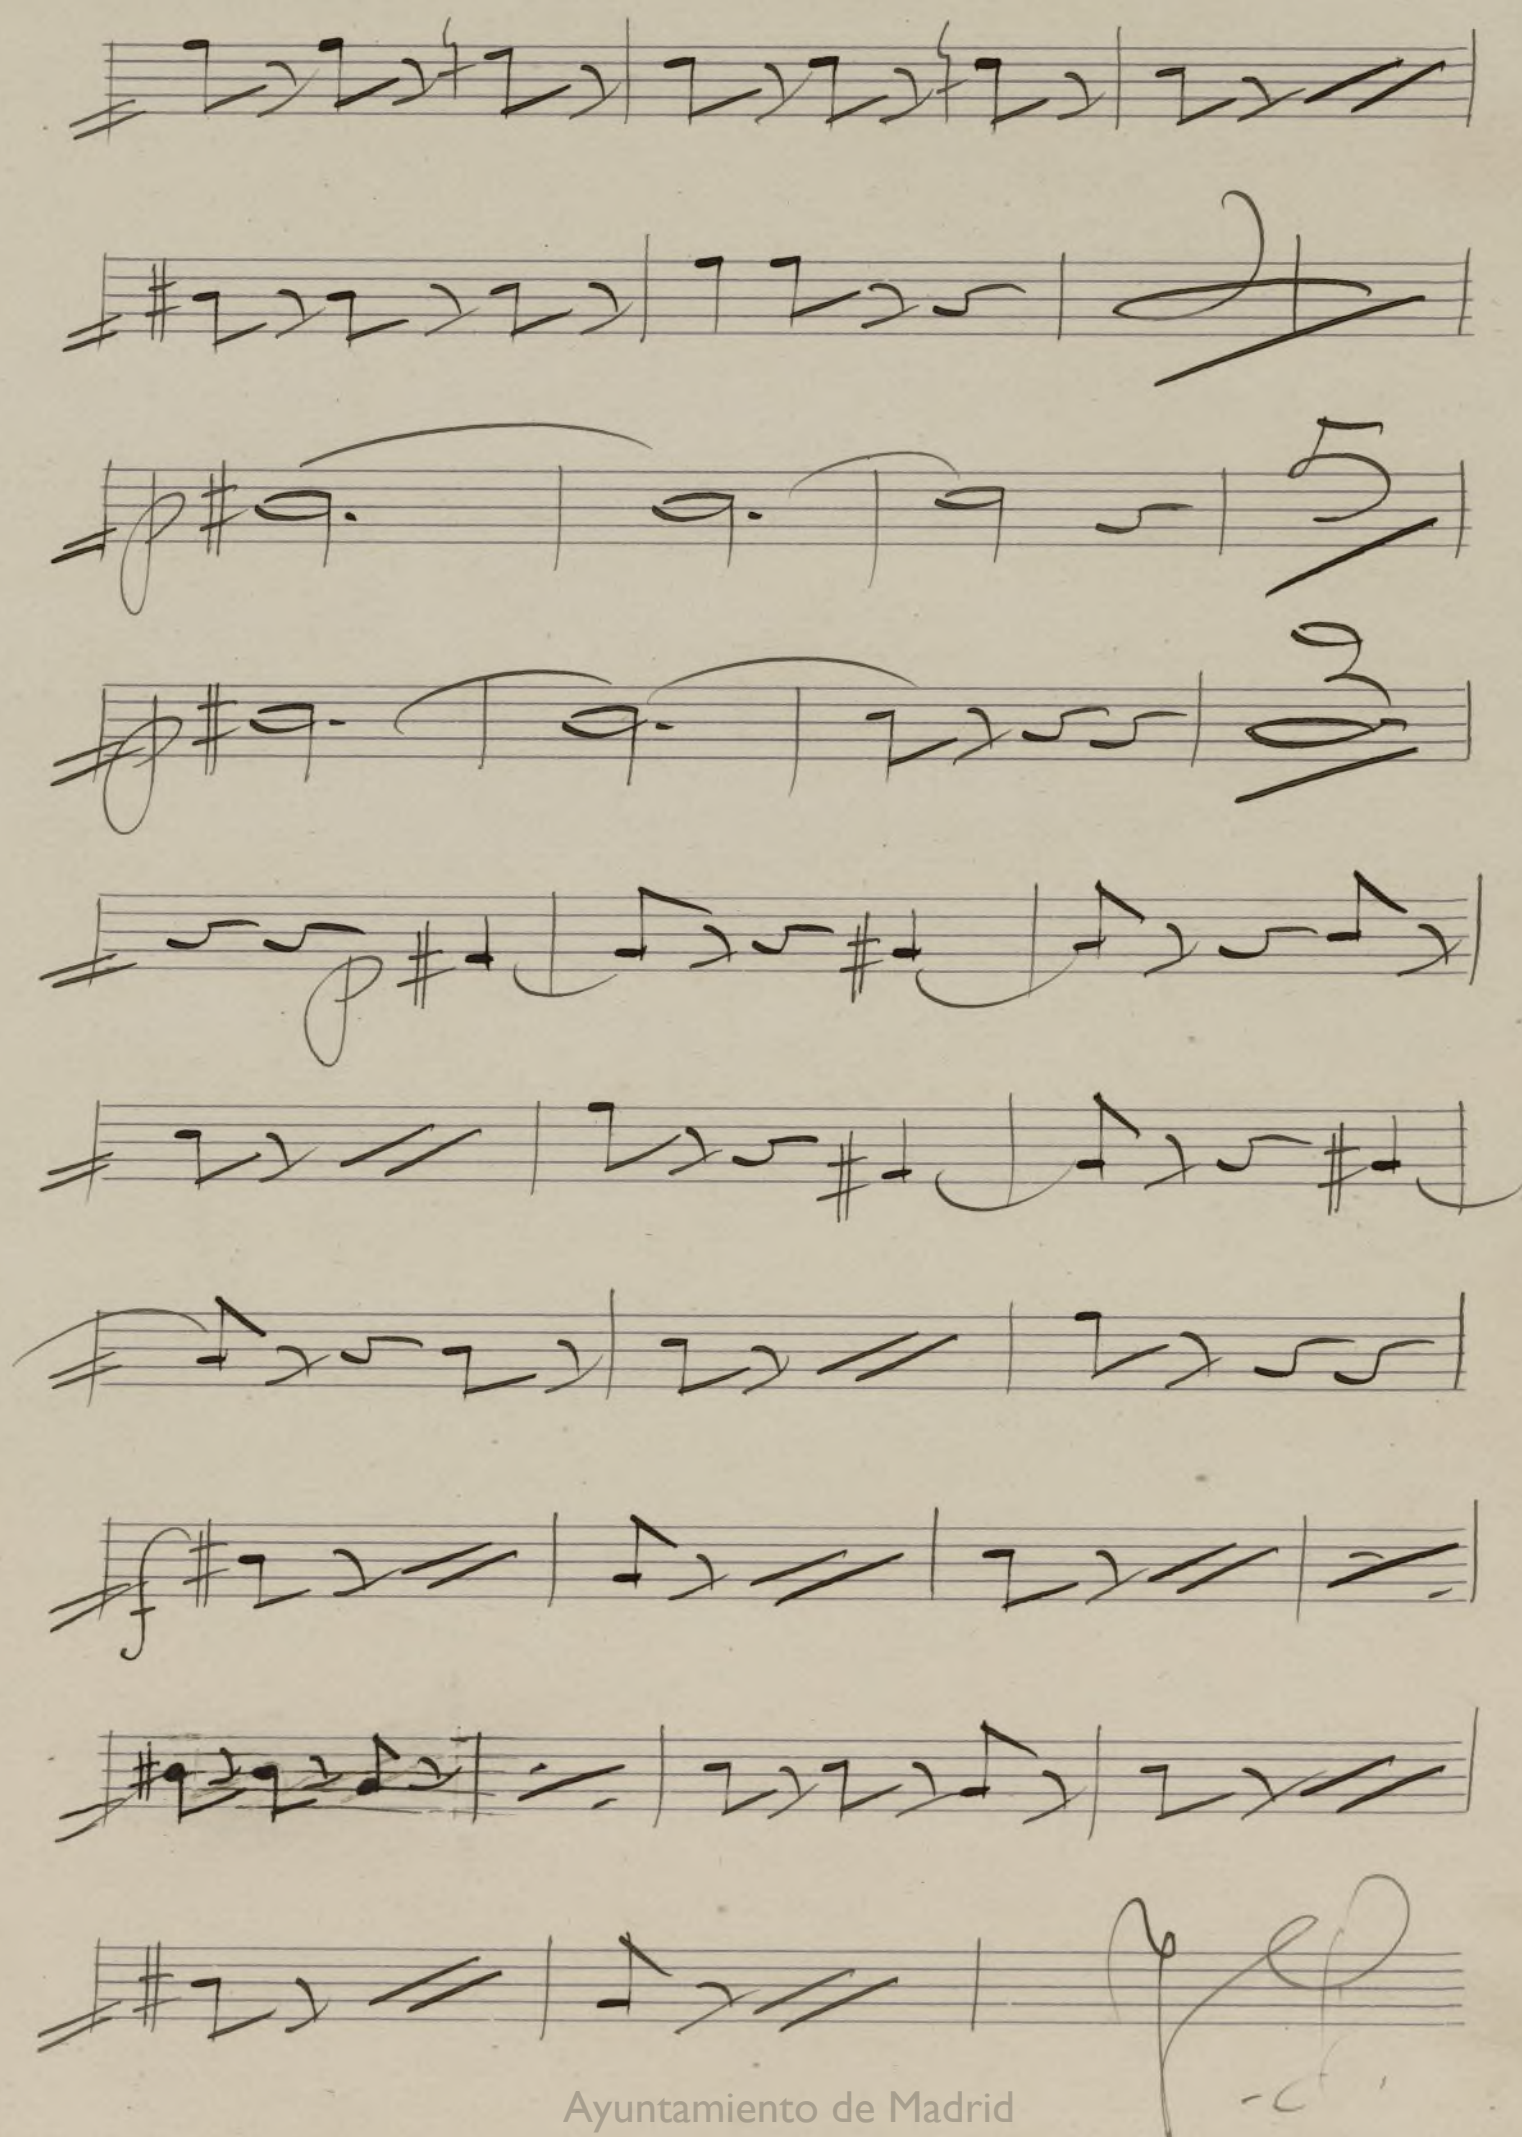 2
p
5
p
2
p
f
Ayuntamiento de Madrid